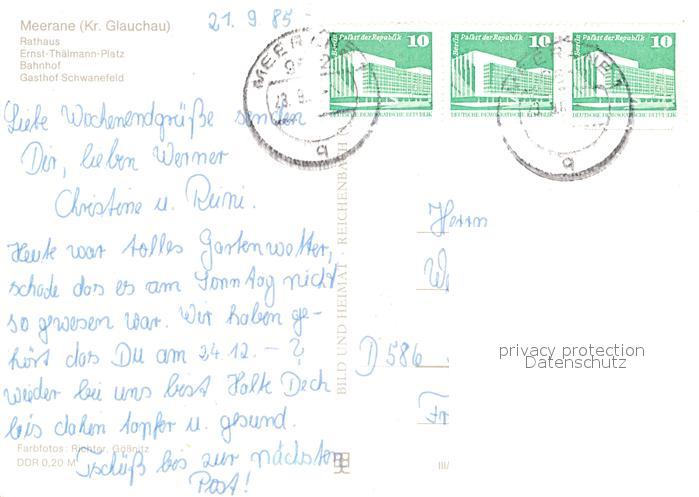 Meerane (Kr. Glauchau)
Rathaus
Ernst-Thälmann-Platz
Bahnhof
Gasthof Schwanefeld
21.9.85
Liebe Wochenendgrüße senden
Dir, lieben Werner
Christine u. Reini.
Heute war tolles Gartenwetter,
schade das es am Sonntag nicht
so gewesen war. Wir haben ge-
hört das Du am 24.12. – ?
wieder bei uns bist Halte Dich
bis dahin tapfer u. gesund.
Tschüß bis zur nächsten
Post!
Farbfotos: Richter, Gößnitz
DDR 0,20 M
BILD UND HEIMAT · REICHENBACH
III/
Berlin Palast der Republik 10
DEUTSCHE DEMOKRATISCHE REPUBLIK
Berlin Palast der Republik 10
DEUTSCHE DEMOKRATISCHE REPUBLIK
Berlin Palast der Republik 10
DEUTSCHE DEMOKRATISCHE REPUBLIK
MEERANE 1
MEERANE 1
Herrn
We
D 586
Fr
privacy protection
Datenschutz